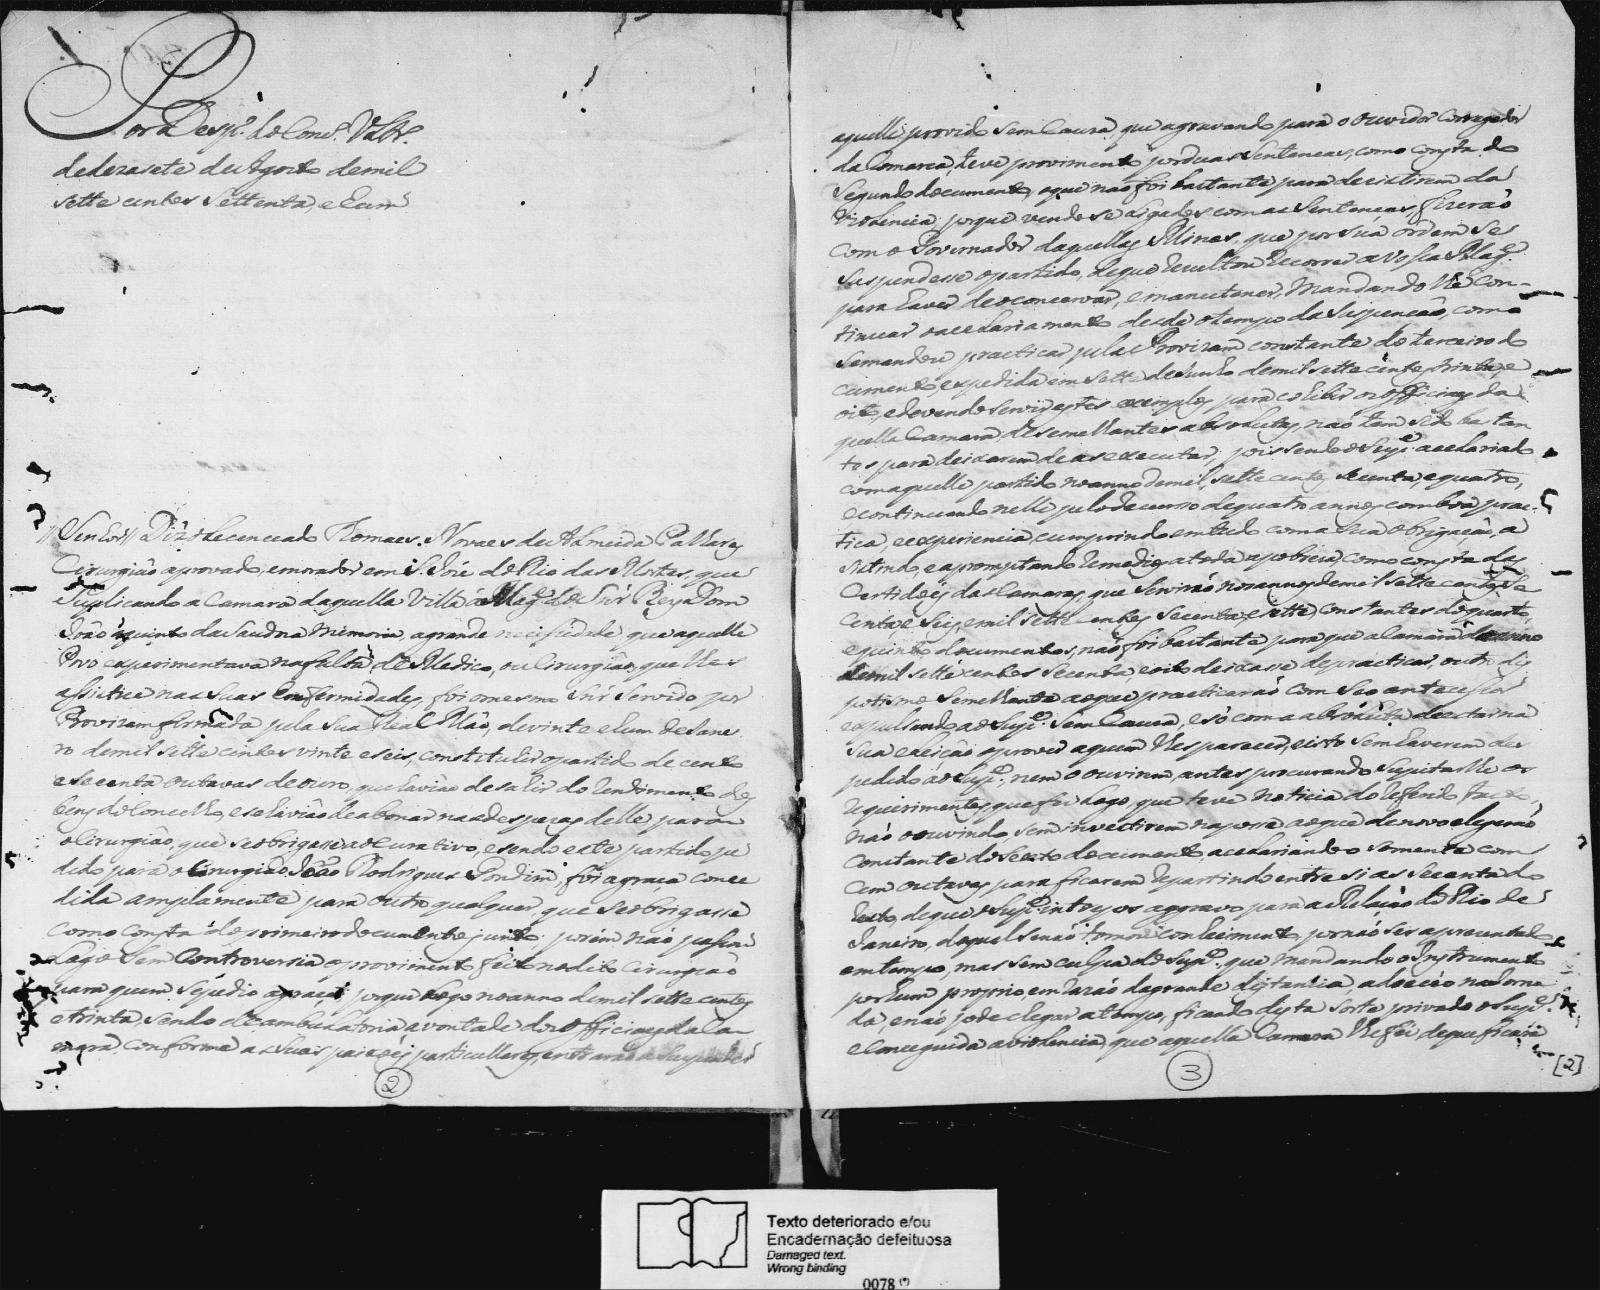 Por Desp.º do Cons.º Ultr.º
de dezasete de Agosto de mil
sette centos settenta, e hum
// Senhor // Diz o Lecenceado Thomaes. Novaes de Almeida Palhares
Cirurgião aprovado, e morador em S. José do Rio das Mortes, que
Suplicando a Camara daquella Villa á Mag.e do Snr Rey Dom
João o quinto da Saudoza Memoria, a grande necissidade que aquelle
Povo experimentava na falta de Medico, ou Cirurgião, que lhes
assistice nas suas Emfermidades, foi o mesmo Snr servido por
Provizam firmada pela Sua Real Mão, de vinte e hum de Jane
ro de mil sette centos vinte e seis, constituhir o partido de cento
e secenta outavas de ouro, que havião de sahir do Rendimento dos
bens do Concelho, e se havião de abonar nas despezas delle para
o Cirurgião, que se obrigasse ao Curativo, e sendo este partido pe
dido para o Cirurgião João Rodrigues Gondim, foi a graça conce
dida amplamente para outro qualquer, que se obrigasse
como consta do primeiro documento junto: porém não passou
Logo Sem Controversia o provimento feito no dito Cirurgião
para quem se pedio a graça porque Logo no anno de mil sette centos
e trinta, sendo de ambulatoria a vontade dos Officiaes da Ca
mara conforme as suas paixoẽs particullares, entrarão a Suspender
2
aquelle provido sem Cauza, que agravando para o Ouvidor Corregedor
da Comarca, teve provimento por duas Sentenças, como consta do
Segundo documento, o que não foi bastante para desistirem da
Violencia: porque vendo se afogados com as Sentenças, fizerão
com o Governador daquellas Minas, que por sua ordem se
Suspendesse o partido, de que Rezultou Recorrer a Vossa Mag.e
para haver de o concervar, e manutener, Mandando lhe Con-
tinuar o acellariamento desde o tempo da Suspenção, como
se mandou practicar pela Provizam constante do terceiro do
cumento, expedida em sette de Junho de mil sette centos trinta, e
oito, e devendo servir estes exemplos para cohibir os Officiaes da
quella Camara de semelhantes absolutas, não tem sido bastan
tes para deixarem de as executar; pois sendo o Sup.e acellariado
com aquelle partido no anno de mil, sette centos secenta, e quatro,
e continuando nelle pelo decurso de quatro annos, com boa prac-
tica, e experiencia, cumprindo em tudo com a Sua obrigação, a
sistindo, e apromptando Remedios a toda a pobreza, como consta das
Certidoẽs das Camaras, que Servirão nos annos de mil sette centos Se
centa, e Seis, e mil sette centos Secenta, e sette, Constantes do quarto,
e quinto documentos, não foi bastante para que a Camara do anno
de mil sette centos secenta, e oito deixasse de practicar, outro dis
potismo Semelhante ao que practicarão com Seo antecessor
expulsando ao Sup.e sem Cauza, e só com a absoluta de estar na
Sua eleição o prover a quem lhes parecer, e isto sem haverem des
pedido ao Sup.e, nem o ouvirem, antes procurando Supitar lhe os
Requerimentos, que fez Logo, que teve noticia do Referido facto,
não o ouvindo, sem investirem na posse ao que de novo elegerão
Constante do Sexto documento, acellariando o somente com
cem outavas, para ficarem Repartindo entre si as Secenta do
Resto, de que o Sup.e intrepos aggravo para a Relação do Rio de
Janeiro, do qual se não tomou conhecimento, por não ser aprezentado
em tempo, mas sem culpa do Sup.e, que mandando o Instrumento
por hum proprio, em Razão da grande distancia, adoeceo na Jorna
da, e não pode chegar a tempo, ficando desta sorte privado o Sup.e
e Conceguida a violencia, que aquella Camara lhe fez de que ficaria
[2]
3
Texto deteriorado e/ou
Encadernação defeituosa
Damaged text.
Wrong binding
0078 (*)